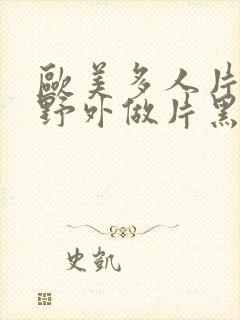 歐美多人片
野外做片黑
史凱